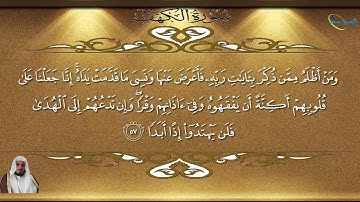 سورة الكهف
وَمَنْ أَظْلَمُ مِمَّن ذُكِّرَ بِـَٔايَـٰتِ رَبِّهِۦ فَأَعْرَضَ عَنْهَا وَنَسِىَ مَا قَدَّمَتْ يَدَاهُ ۚ إِنَّا جَعَلْنَا عَلَىٰ
قُلُوبِهِمْ أَكِنَّةً أَن يَفْقَهُوهُ وَفِىٓ ءَاذَانِهِمْ وَقْرًا ۖ وَإِن تَدْعُهُمْ إِلَى ٱلْهُدَىٰ
فَلَن يَهْتَدُوٓا۟ إِذًا أَبَدًا ﴿٥٧﴾